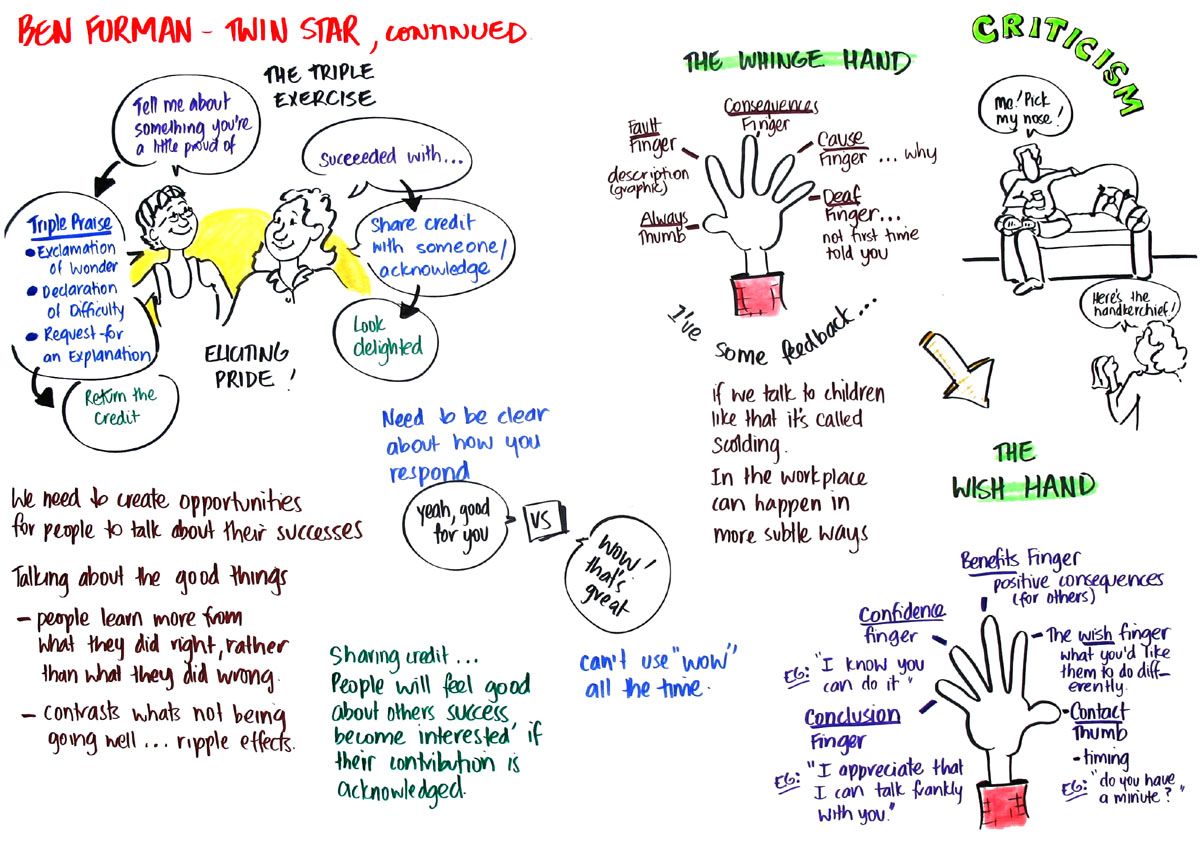 BEN FURMAN - TWIN STAR, CONTINUED
THE TRIPLE
EXERCISE
Tell me about
something you're
a little proud of
Succeeded with...
Triple Praise
• Exclamation
of Wonder
• Declaration
of Difficulty
• Request for
an Explanation
Return the
credit
Share credit
with someone/
acknowledge
Look
delighted
ELICITING
PRIDE!
Need to be clear
about how you
respond
yeah, good
for you
VS
WOW!
that's
great
can't use "wow"
all the time.
We need to create opportunities
for people to talk about their successes
Talking about the good things
- people learn more from
what they did right, rather
than what they did wrong.
- contrasts whats not being
going well... ripple effects.
Sharing credit...
People will feel good
about others success,
become interested if
their contribution is
acknowledged.
THE WHINGE HAND
Consequences
Finger
Fault
Finger
description
(graphic)
Always
Thumb
Cause
Finger ... why
Deaf
Finger...
not first time
told you
I've some feedback...
if we talk to children
like that it's called
Scolding.
In the workplace
can happen in
more subtle ways
CRITICISM
Me! Pick
my nose!
Here's the
handkerchief!
THE
WISH HAND
Benefits Finger
positive consequences
(for others)
Confidence
finger
EG: "I know you
can do it"
Conclusion
Finger
EG: "I appreciate that
I can talk frankly
with you."
- The wish finger
what you'd like
them to do diff-
erently.
• Contact
Thumb
• timing
EG: "do you have
a minute?"